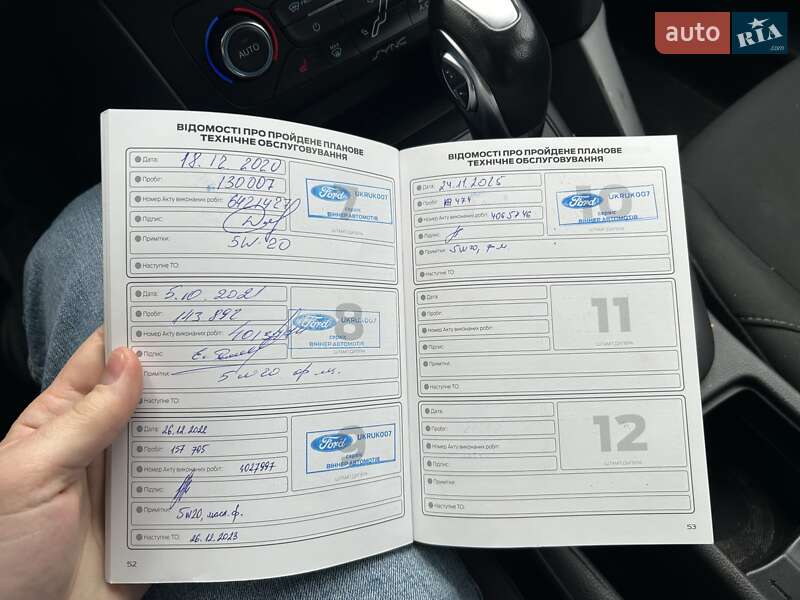 auto RIA.com
AUTO
SYNC
ВІДОМОСТІ ПРО ПРОЙДЕНЕ ПЛАНОВЕ
ТЕХНІЧНЕ ОБСЛУГОВУВАННЯ
Дата: 18.12.2020
Пробіг: 130007
Номер Акту виконаних робіт:
Підпис:
Примітки: 5W20
Наступне ТО:
7
Ford UKRUK007
сервіс
ВІННЕР АВТОМОТІВ
Дата: 5.10.2021
Пробіг: 143.892
Номер Акту виконаних робіт:
Підпис:
Примітки: 5W20 ф.м.
Наступне ТО:
8
Ford UKRUK007
сервіс
ВІННЕР АВТОМОТІВ
ШТАМП ДИЛЕРА
Дата: 26.12.2022
Пробіг: 157 765
Номер Акту виконаних робіт: 4027997
Підпис:
Примітки: 5W20, масл.ф.
Наступне ТО: 26.12.2023
9
Ford UKRUK007
сервіс
ВІННЕР АВТОМОТІВ
ШТАМП ДИЛЕРА
52
ВІДОМОСТІ ПРО ПРОЙДЕНЕ ПЛАНОВЕ
ТЕХНІЧНЕ ОБСЛУГОВУВАННЯ
Дата: 24.11.2025
Пробіг:
Номер Акту виконаних робіт: 4065746
Підпис:
Примітки: 5W20, ф-м
Наступне ТО:
10
Ford UKRUK007
сервіс
ВІННЕР АВТОМОТІВ
ШТАМП ДИЛЕРА
Дата:
Пробіг:
Номер Акту виконаних робіт:
Підпис:
Примітки:
Наступне ТО:
11
ШТАМП ДИЛЕРА
Дата:
Пробіг:
Номер Акту виконаних робіт:
Підпис:
Примітки:
Наступне ТО:
12
ШТАМП ДИЛЕРА
53